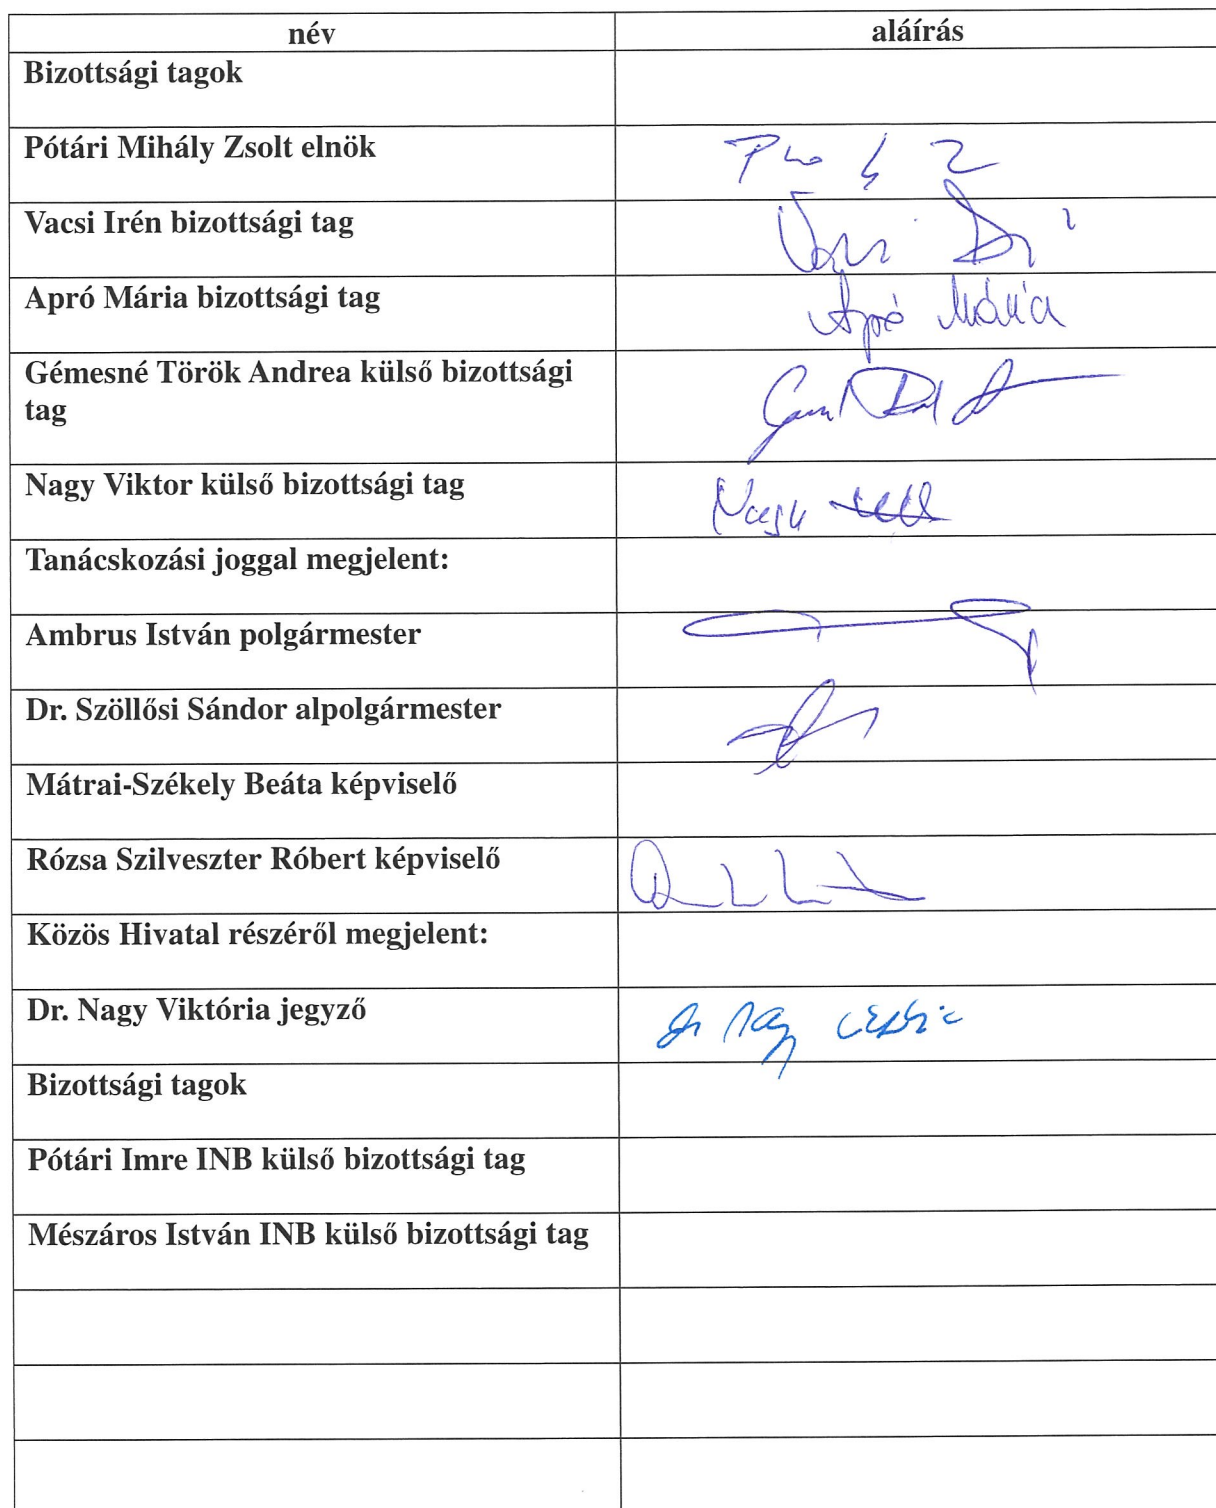 név aláírás
Bizottsági tagok
Pótári Mihály Zsolt elnök
Vacsi Irén bizottsági tag
Apró Mária bizottsági tag Apró Mária
Gémesné Török Andrea külső bizottsági
tag
Nagy Viktor külső bizottsági tag Nagy
Tanácskozási joggal megjelent:
Ambrus István polgármester
Dr. Szöllősi Sándor alpolgármester
Mátrai-Székely Beáta képviselő
Rózsa Szilveszter Róbert képviselő
Közös Hivatal részéről megjelent:
Dr. Nagy Viktória jegyző
Bizottsági tagok
Pótári Imre INB külső bizottsági tag
Mészáros István INB külső bizottsági tag